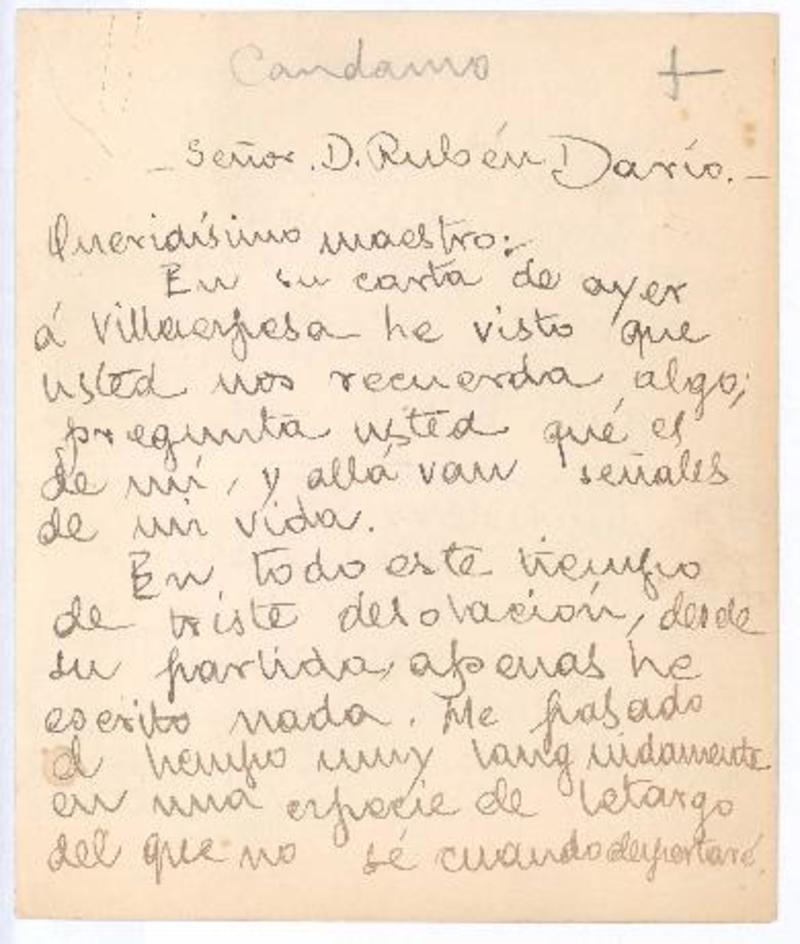 Candamo
- Señor. D. Rubén Darío. -
Queridísimo maestro:
En su carta de ayer
á Villaespesa he visto que
usted nos recuerda algo;
pregunta usted qué es
de mí, y allá van señales
de mi vida.
En todo este tiempo
de triste desolación, desde
su partida, apenas he
escrito nada. Me pasado
el tiempo muy languidamente
en una especie de letargo
del que no sé cuando despertaré.